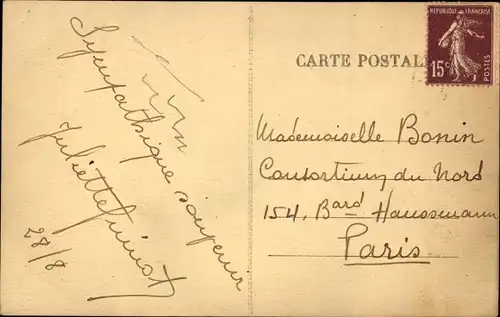 Sympathique souvenir
Juliette
28/8
CARTE POSTALE
REPUBLIQUE FRANÇAISE
15c
POSTES
Mademoiselle Bonin
Consortium du Nord
154, Bard Haussmann
Paris